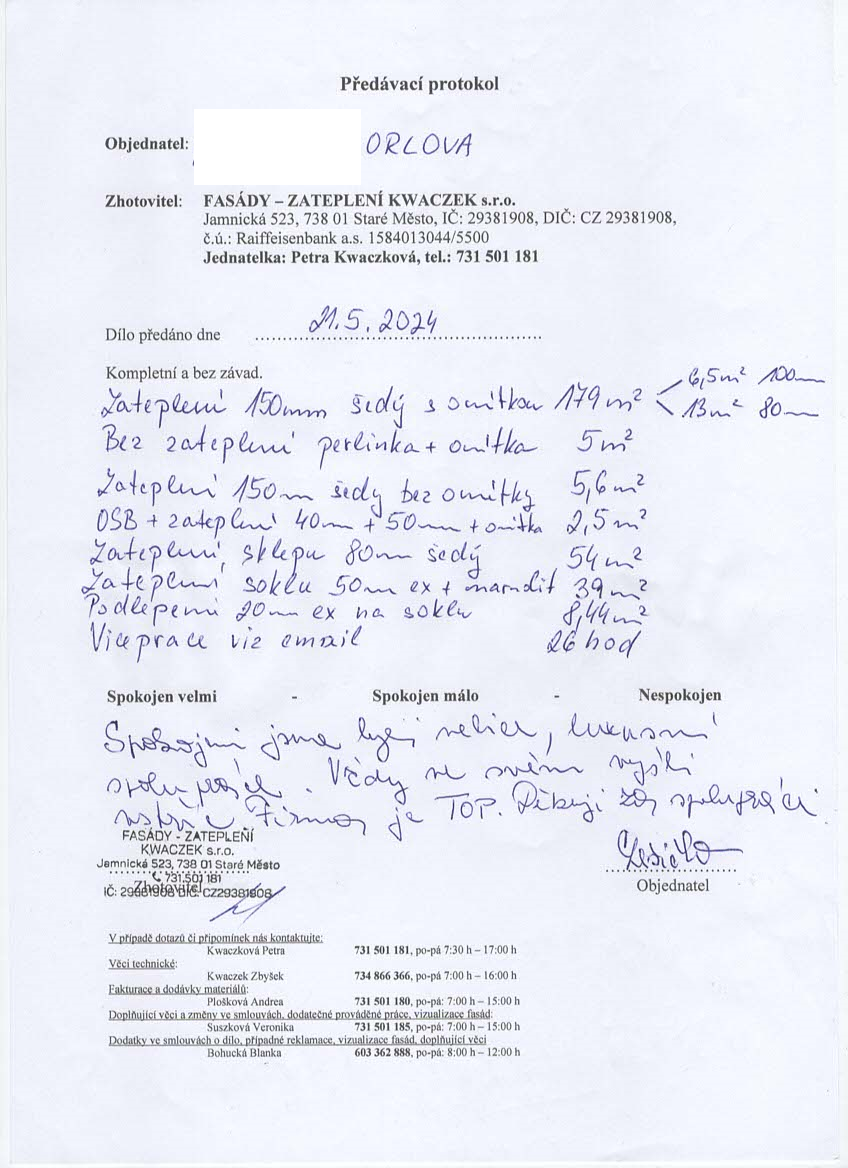 Předávací protokol
Objednatel: ORLOVA
Zhotovitel: FASÁDY – ZATEPLENÍ KWACZEK s.r.o.
Jamnická 523, 738 01 Staré Město, IČ: 29381908, DIČ: CZ 29381908,
č.ú.: Raiffeisenbank a.s. 1584013044/5500
Jednatelka: Petra Kwaczková, tel.: 731 501 181
Dílo předáno dne 21.5.2024
Kompletní a bez závad.
6,5m² 100mm
Zateplení 150mm šedý s omítkou 179m²
13m² 80mm
Bez zateplení perlinka + omítka 5m²
Zateplení 150mm šedý bez omítky 5,6m²
OSB + zateplení 40mm + 50mm + omítka 2,5m²
Zateplení sklepu 80mm šedý 54m²
Zateplení soklu 50mm ex + marmolit 39m²
Podlepení 20mm ex na soklu 8,44m²
Vícepráce viz email 26 hod
Spokojen velmi - Spokojen málo - Nespokojen
Spokojni jsme byli velice, luxusní
spolupráce. Vždy ve svém
Firma je TOP. Děkuji za spolupráci.
FASÁDY - ZATEPLENÍ
KWACZEK s.r.o.
Jamnická 523, 738 01 Staré Město
731 501 181
Zhotovitel
IČ: 29381908 DIČ: CZ29381908
Objednatel
V případě dotazů či připomínek nás kontaktujte:
Kwaczková Petra 731 501 181, po-pá 7:30 h – 17:00 h
Věci technické:
Kwaczek Zbyšek 734 866 366, po-pá 7:00 h – 16:00 h
Fakturace a dodávky materiálů:
Plošková Andrea 731 501 180, po-pá: 7:00 h – 15:00 h
Doplňující věci a změny ve smlouvách, dodatečné prováděné práce, vizualizace fasád:
Suszková Veronika 731 501 185, po-pá: 7:00 h – 15:00 h
Dodatky ve smlouvách o dílo, případné reklamace, vizualizace fasád, doplňující věci
Bohucká Blanka 603 362 888, po-pá: 8:00 h – 12:00 h